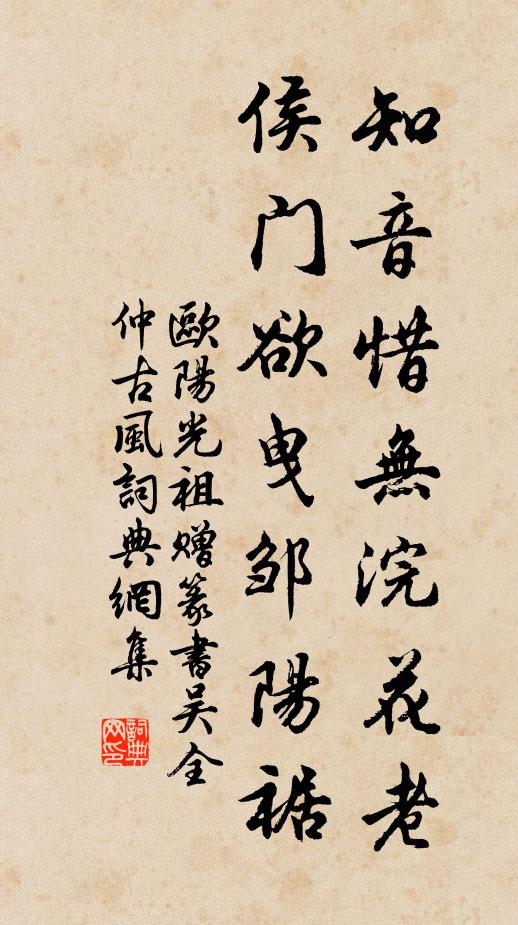 知音惜無浣花老
侯門欲曳邹陽裾
歐陽光祖赠篆書吴全
仲古風詞典網集
詞典网印